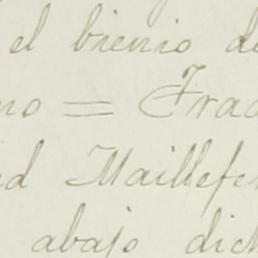 el bienio de
no = Frac
ed Maillefer
abajo dich